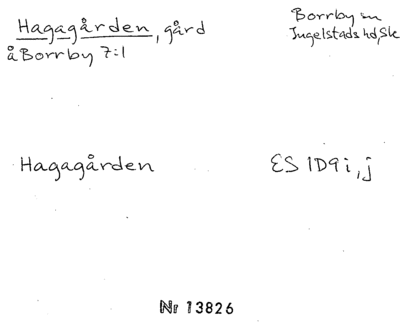 Hagagården, gård
å Borrby 7:1
Borrby sn
Ingelstads hd, Sk
Hagagården
ES 1D9 i, j
Nr 13826